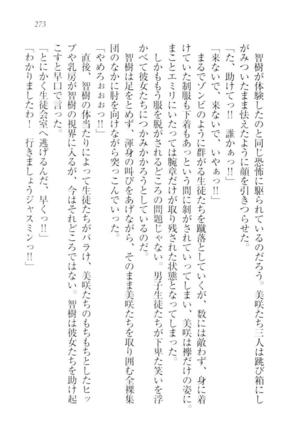 273
智樹が体験したのと同じ恐怖に駆られているのだろう。美咲たち三人は跳び箱にし
がみついたまま怯えたように顔を引きつらせた。
「た、助けてっ!! 誰かぁっ!!」
「来ないで、来ないで、いやぁっ!!」
まるでゾンビのように群がる生徒たちを蹴落としていくが、数には敵わず、身に着
けていた制服も下着もあっという間に剥がされていってしまう。美咲は襷だけの姿に。
まことエミリにいたっては腕章だけが取り残された状態となってしまった。
しかももう服を脱がされるどころの問題じゃない。男子生徒たちが下卑た笑いを浮
かべて彼女たちにつかみかかろうとしているのだ。
智樹は足をとめず、渾身の叫びをあげながら、そのまま美咲たちを取り囲む全裸集
団のなかに肩を向けながら突っこんでいった。
「やめろおおおっ!!」
直後、智樹の体当たりによって生徒たちがバラけ、美咲たちのもちもちとしたヒッ
プや乳房が智樹の視界に入るが、今はそれどころではない。智樹は彼女たちを助け起
こすと早口で言った。
「とにかく生徒会室へ逃げるんだ、早くっ!!」
「わかりましたわ! 行きましょうジャスミンっ!!」